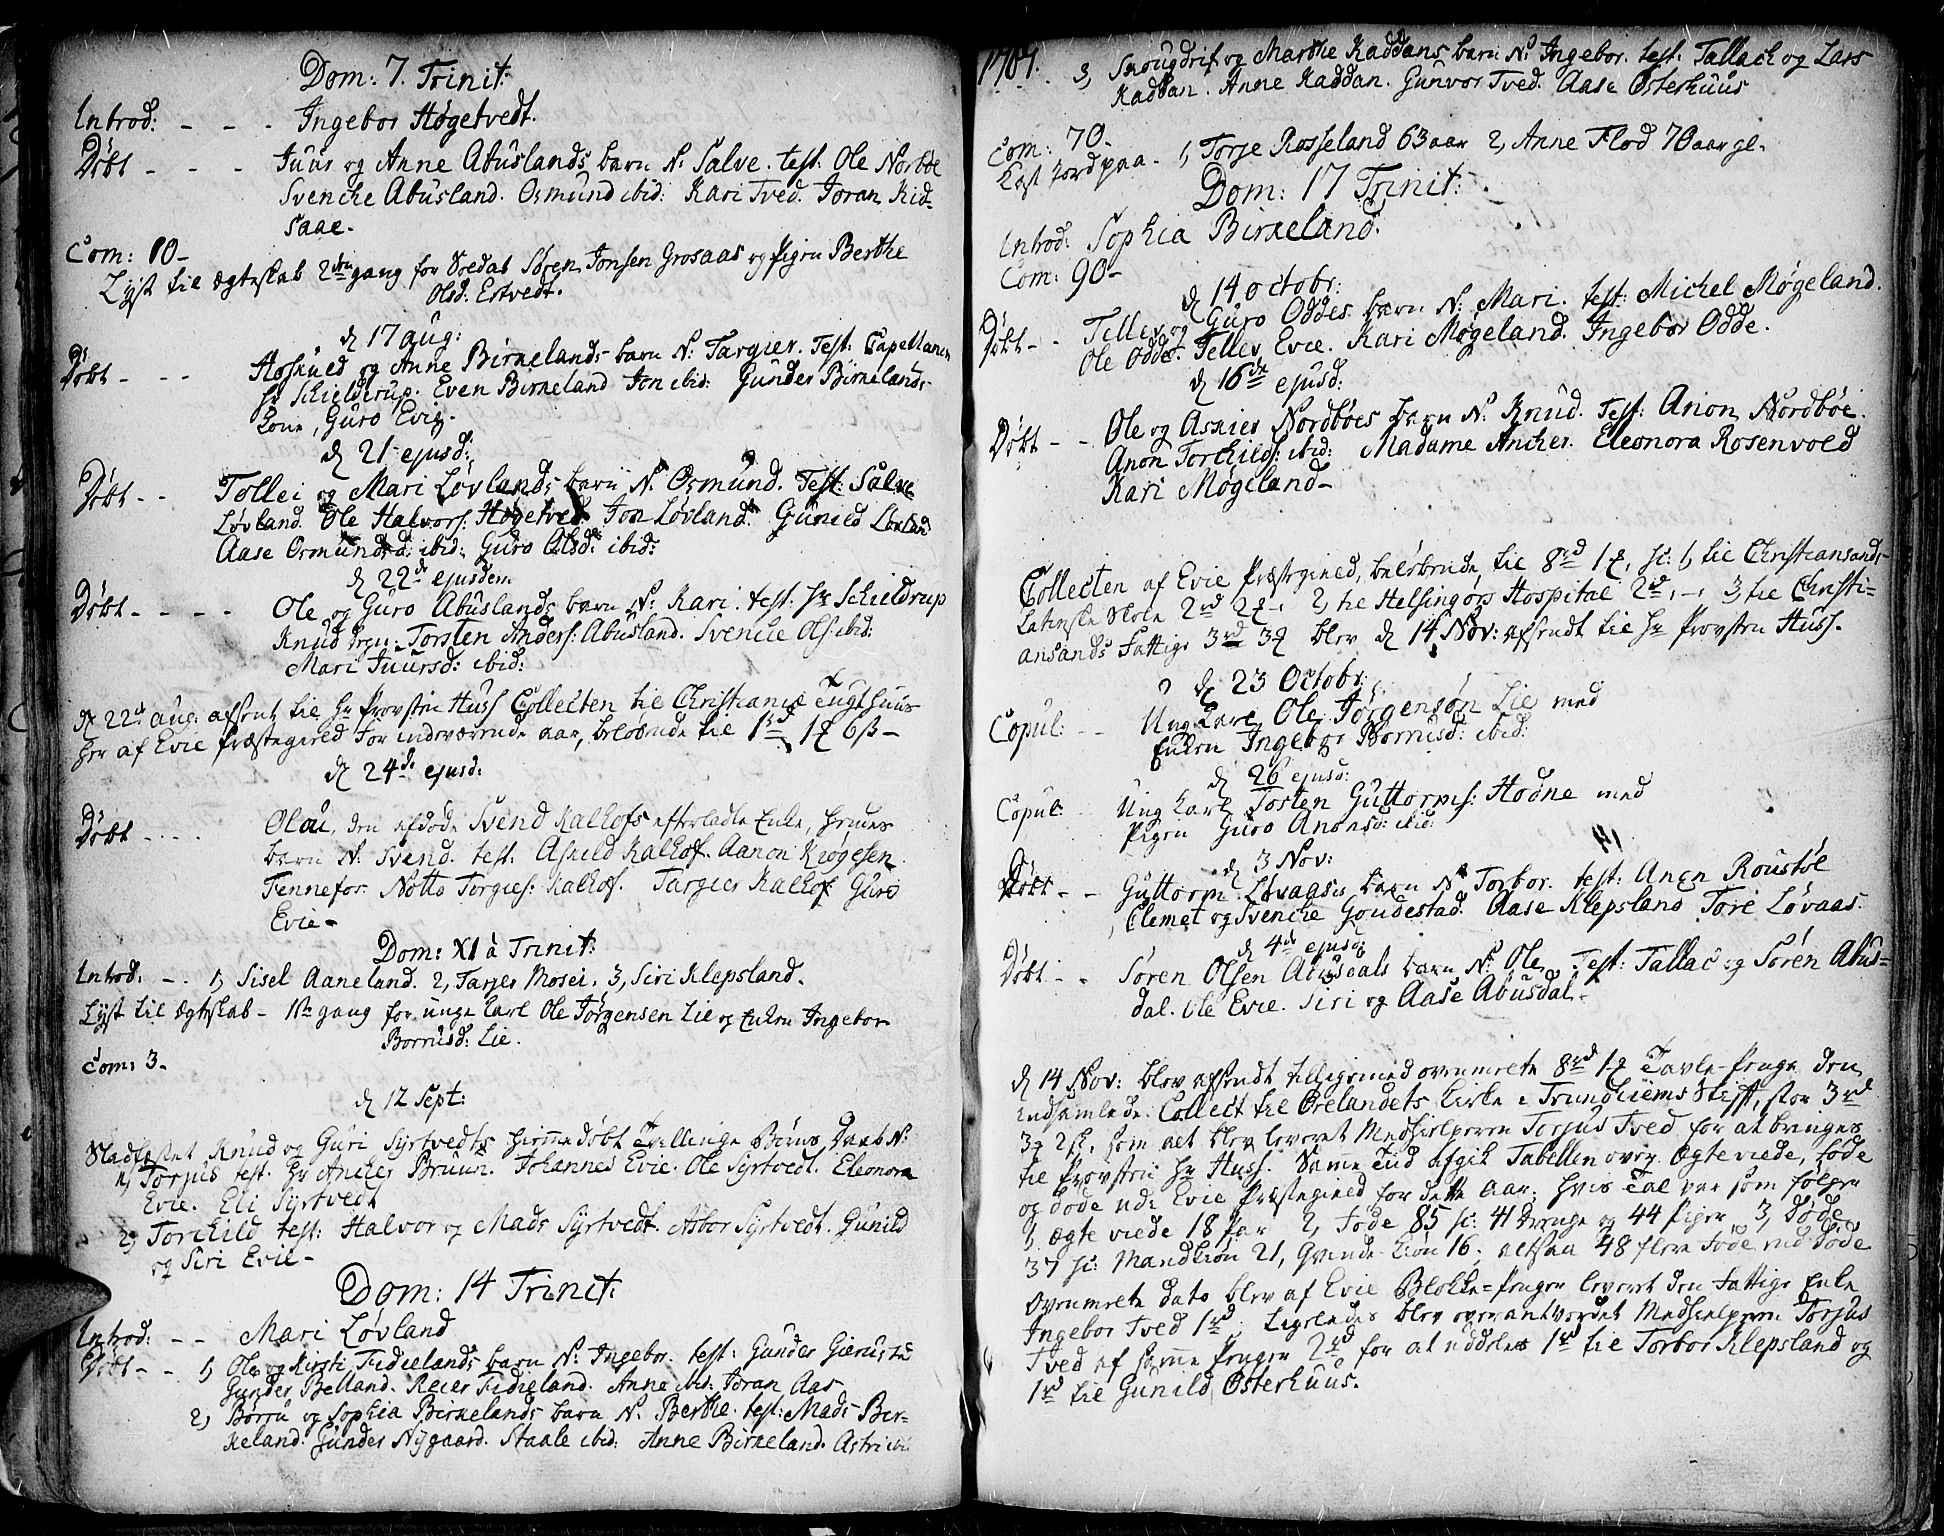 Dom: 7. Trinit:
Introd: - - - Ingebor Høgetvedt.
Døbt - - - Juur og Anne Abuslands barn N: Salve. test: Ole Norbøe
Svenche Abusland. Osmund ibid: Kari Tved. Joran Kid-
saae.
Com: 10-
Lyst til Ægteskab 2den gang for Soldat Søren Jonsen Grosaas og Pigen Berthe
Olsd: Estvedt.
d 17 aug:
Døbt - - - Hoskuld og Anne Birkelands barn N: Targier. Test: Capellanen
Hr Schielderup. Even Birkeland Jon ibid: Gunder Birkelands
Kone, Guro Evie.
d 21 ejusd:
Døbt - - Tollei og Mari Løvlands barn N. Osmund. Test: Salve
Løvland. Ole Halvors: Høgetved Jon Løvland. Gunild Løvland
Aase Osmundsd: ibid: Guro Olsd: ibid:
d 22de ejusdem
Døbt - - - - Ole og Guro Abuslands barn N: Kari. test: Hr Schieldrup
Knud Torsten Anders: Abusland. Svenche Ols: ibid:
Mari Juursd: ibid:
d 22de aug: afsent til Hr Provsten Huss Collecten til Christianiæ Tugthuus
her af Evie Præstegield for indeværende aar, beløbende til 1rd 1 6ß-
d 24de ejusd:
Døbt - - - Olau, den afdøde Svend Kalhofs efterladte Enke, hendes
barn N: Svend. test: Askild Kalhof. Aanon Kiøgesen
Tennefos. Notto Torgies: Kalhof. Targier Kalhof Guro
Evie-
Dom: XI à Trinit:
Introd: - . 1, Sisel Aaneland. 2, Tarjer Mosei. 3, Siri Klepsland.
Lyst til Ægteskab - 1te gang for unge Karl Ole Jørgensen Lie og Enken Ingebor
Borrusd: Lie.
Com: 3.
d 12 Sept:
Stadfæstet Knud og Guri Syrtvedts hiemmedøbt Tvillinge Børns Daab N:
1, Torjus test. Hr Ancher Bruun. Johannes Evie. Ole Syrtvedt. Eleonora
Evie. Eli Syrtvedt
2, Torchild test: Halvor og Mads Syrtvedt. Asbor Syrtvedt. Gunild
og Siri Evie-
Dom: 14 Trinit:
Introd: - - Mari Løvland
Døbt - - 1, Ole og Kirsti Fidielands barn N: Ingebor. test: Gunder
Gunder Belland. Reier Fidieland. Anne ibid: Joran Aas
2, Børru og Sophia Birkelands barn N. Berthe. test: Mads Bir-
keland. Gunder Nygaard. Staale ibid: Anne Birkeland. Astri ibid
3, Snougdrif og Marthe Kaddans barn N: Ingebor. test: Tallack og Lars
Kaddan. Anne Kaddan. Gunvor Tved. Aase Østerhuus
Com: 70.
Kast Jord paa - 1, Torje Rosseland 63 aar 2, Anne Flod 70 aar gl.
Dom: 17 Trinit:
Introd: Sophia Birkeland.
Com: 90-
d 14 octobr:
Døbt - - Tellev og Guro Oddes barn N: Mari. test: Michel Møgeland.
Ole Odde. Tellev Evie. Kari Møgeland. Ingebor Odde.
d 16de ejusd:
Døbt - - Ole og Asnier Nordbøes barn N. Knud. Test: Anon Nordbøe.
Anon Torchilds: ibid: Madame Ancher. Eleonora Rosenvold
Kari Møgeland-
Collecten af Evie Præstegield, beløbende til 8rd 1, sc: 1, til Christiansands
Latinske Skole 2rd 2 -: 2, til Helsingørs Hospital 2rd, -: 3, til Christi-
ansands Fattige 3rd 3 blev d 14 Nov: afsendt til Hr Provsten Huss.
d 23 Octobr:
Copul: - - Ung Karl Ole Jørgensøn Lie med
Enken Ingebor Borrusd: ibid:
d 26 ejusd:
Copul: Ung Karl Torsten Guttorms: Hodne med
Pigen Guro Anonsd: ibid:
d 3 Nov:
Døbt - - Guttorm Løvaases barn N: Torbor. test: Anen Roustøl
Clemet og Svenche Goudestad. Aase Klepsland Tore Løvaas.
d 4de ejusd:
Døbt - - Søren Olsen Abusdals barn N: Ole. Test: Tallac og Søren Abus-
dal. Ole Evie. Siri og Aase Abusdal-
d 14 Nov: blev afsendt tilligemed ovenmelte 8rd 1 Tavle-Penge den
indsamlede Collect til Ørelandets Kirke i Trundhiems Stift, stor 3rd
3 2ß, som alt blev leveret Medhielperen Torjus Tved for at bringes
til Provsten Hr Huss. Samme Tiid afgik Tabellen over Ægteviede, fødde
og døde udi Evie Præstegield for dette Aar, hvis Tal var som følger
1, Ægteviede 18 Par 2, Føde 85 sc: 41 Drenge og 44 Piger 3, Døde
37 sc: Mandkiøn 21, Qvinde-kiøn 16, altsaa 48 flere Føde end Døde
Ovenmelte dato blev af Evie Blokke-Penger leveret den Fattige Enke
Ingebor Tved 1rd. Ligeledes blev overantvordet Medhielperen Torjus
Tved af samme Penger 2rd for at uddeles 1rd til Torbor Klepsland og
1rd til Gunild Østerhuus.